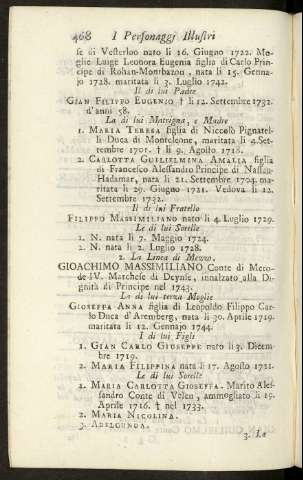 468 I Personaggi Illustri
se di Vesterloo nato li 16. Giugno 1722. Mo-
glie Luige Leonora Eugenia figlia di Carlo Prin-
cipe di Rohan-Montbazon, nata li 15. Genna-
jo 1728. maritata li 3. Luglio 1742.
Il di lui Padre
GIAN FILIPPO EUGENIO † li 12. Settembre 1732.
d'anni 58.
La di lui Matrigna, e Madre
1. MARIA TERESA figlia di Niccolò Pignatel-
li Duca di Monteleone, maritata li 4. Set-
tembre 1701. † li 9. Agosto 1718.
2. CARLOTTA GUILIELMINA AMALIA figlia
di Francesco Alessandro Principe di Nassau-
Hadamar, nata li 21. Settembre 1704. ma-
ritata li 29. Giugno 1721. Vedova li 12.
Settembre 1732.
Il di lui Fratello
FILIPPO MASSIMILIANO nato li 4. Luglio 1729.
Le di lui Sorelle
1. N. nata li 7. Maggio 1724.
2. N. nata li 2. Luglio 1728.
2. La Linea di Mezzo.
GIOACHIMO MASSIMILIANO Conte di Mero-
de IV. Marchese di Deynse, innalzato alla Di-
gnità di Principe nel 1743.
La di lui terza Moglie
GIOSEFFA ANNA figlia di Leopoldo Filippo Car-
lo Duca d'Aremberg, nata li 30. Aprile 1719.
maritata li 12. Gennajo 1744.
I di lui Figli
1. GIAN CARLO GIUSEPPE nato li 3. Dicem-
bre 1719.
2. MARIA FILIPPINA nata li 17. Agosto 1721.
Le di lui Sorelle
1. MARIA CARLOTTA GIOSEFFA. Marito Ales-
sandro Conte di Velen, ammogliato li 19.
Aprile 1716. † nel 1733.
2. MARIA NICOLINA.
3. ADELGUNDA.
3. La